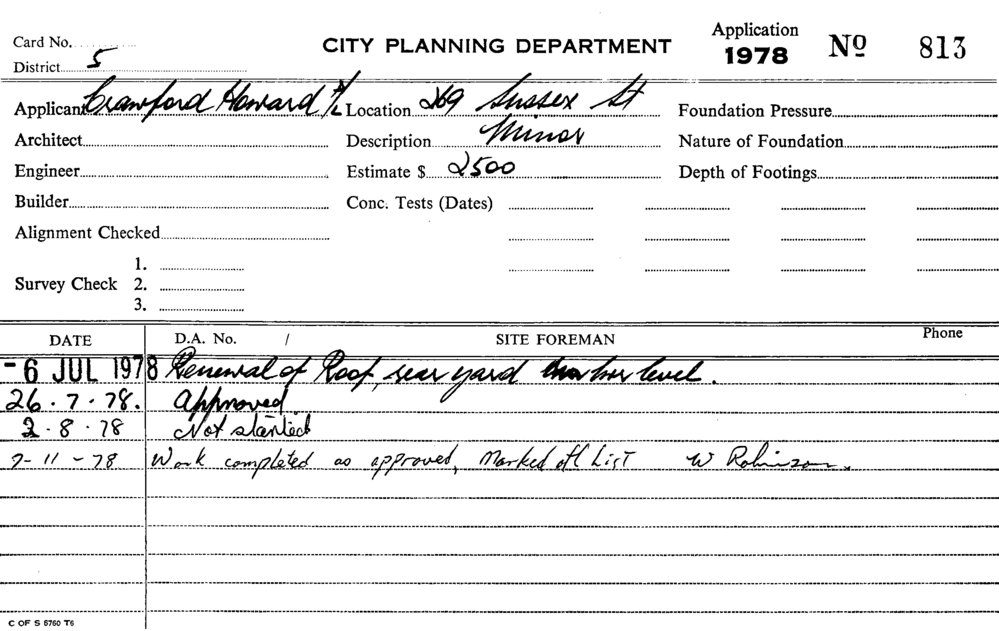 Card No. CITY PLANNING DEPARTMENT Application 1978 Nº 813
District 5
Applicant Crawford Howard P/L Location 269 Sussex St Foundation Pressure
Architect Description Minor Nature of Foundation
Engineer Estimate $ 2500 Depth of Footings
Builder Conc. Tests (Dates)
Alignment Checked
1.
Survey Check 2.
3.
DATE D.A. No. / SITE FOREMAN Phone
-6 JUL 1978 Renewal of Roof, rear yard level.
26.7.78. Approved
2.8.78 Not started
7-11-78 Work completed as approved, Marked off List W Robinson.
C OF S 5760 T6